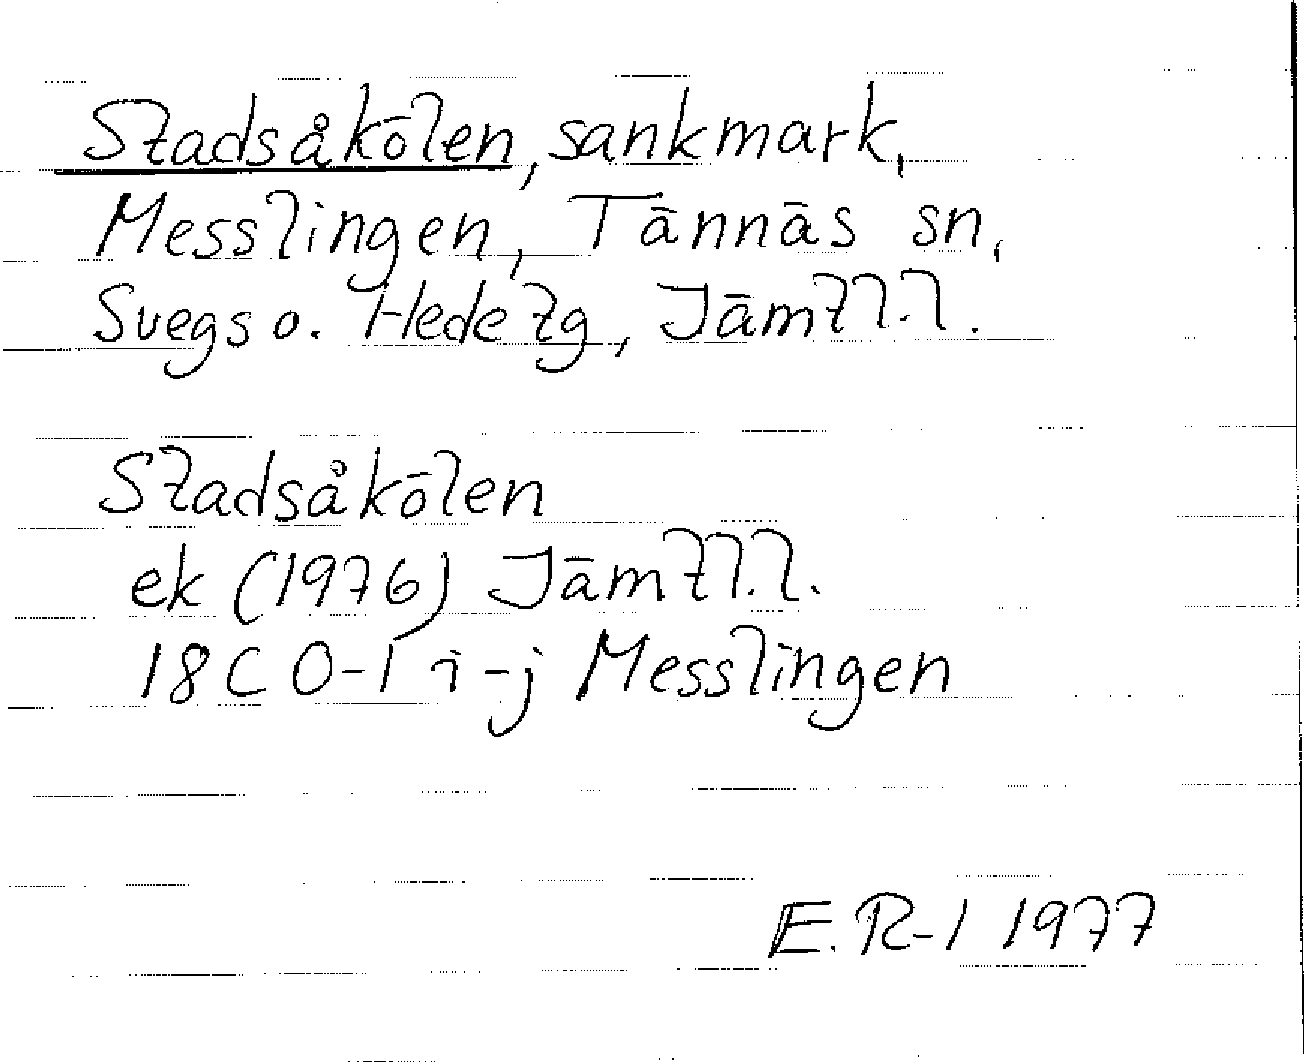 Stadsåkölen, sankmark,
Messlingen, Tännäs sn,
Svegs o. Hede tg, Jämtl.l.
Stadsåkölen
ek (1976) Jämtl.l.
18C 0-1 i-j Messlingen
E.R-l 1977